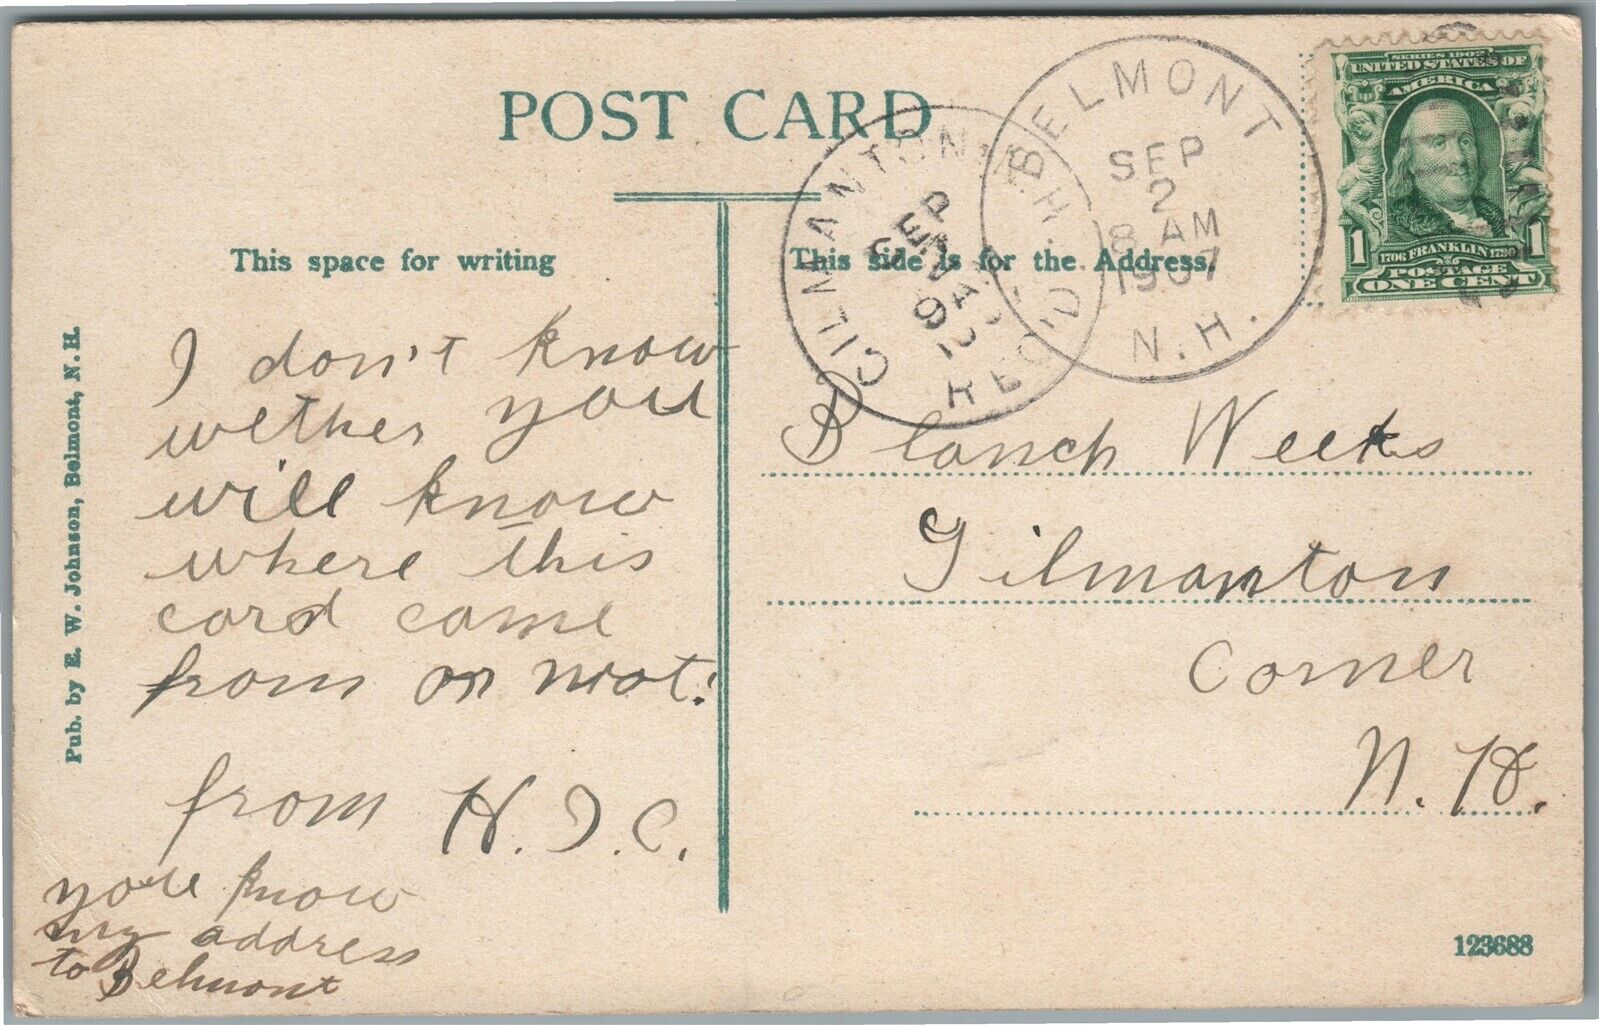 POST CARD
This space for writing
This side is for the Address.
Pub. by E. W. Johnson, Belmont, N. H.
I don't know
wether you
will know
where this
card came
from or not.
from H. I. C.
you know
my address
to Belmont
GILMANTON N.H.
SEP
2
9 AM
REC'D.
BELMONT
SEP
2
8 AM
1907
N.H.
SERIES 1902
UNITED STATES OF
AMERICA
1 1
1706 FRANKLIN 1790
POSTAGE
ONE CENT
Blanch Weeks
Gilmanton
Corner
N. H.
123688